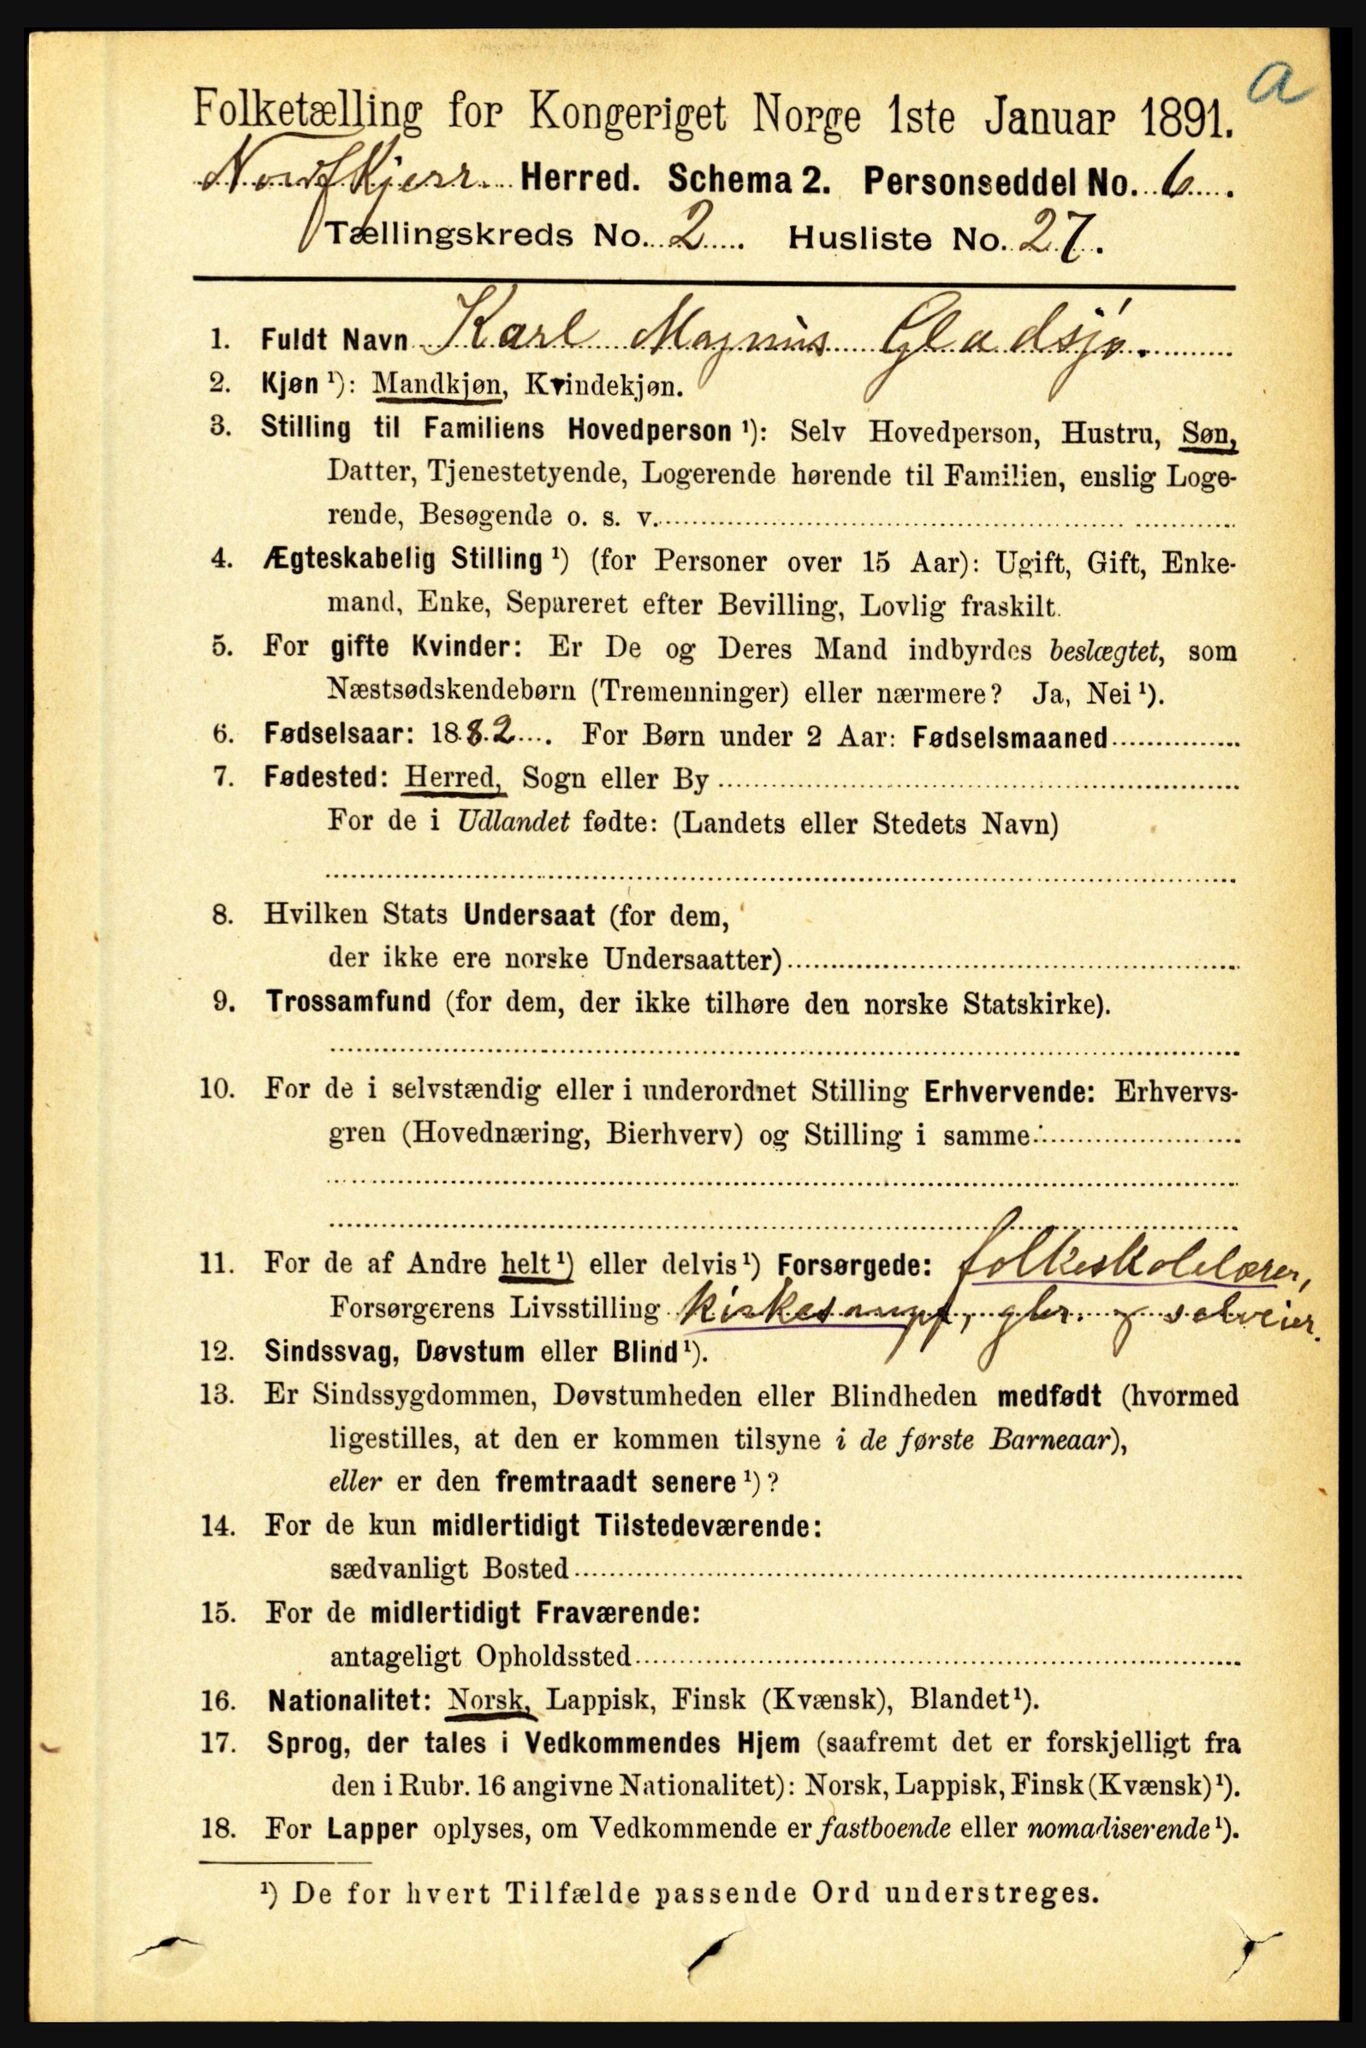 a
Folketælling for Kongeriget Norge 1ste Januar 1891.
Herred. Schema 2. Personseddel No. 6.
Tællingskreds No. 2. Husliste No. 27.
1. Fuldt Navn Karl Magnus Gladsjø.
2. Kjøn ¹): Mandkjøn, Kvindekjøn.
3. Stilling til Familiens Hovedperson ¹): Selv Hovedperson, Hustru, Søn,
Datter, Tjenestetyende, Logerende hørende til Familien, enslig Loge-
rende, Besøgende o. s. v.
4. Ægteskabelig Stilling ¹) (for Personer over 15 Aar): Ugift, Gift, Enke-
mand, Enke, Separeret efter Bevilling, Lovlig fraskilt.
5. For gifte Kvinder: Er De og Deres Mand indbyrdes beslægtet, som
Næstsødskendebørn (Tremenninger) eller nærmere? Ja, Nei ¹).
6. Fødselsaar: 1882. For Børn under 2 Aar: Fødselsmaaned
7. Fødested: Herred, Sogn eller By
For de i Udlandet fødte: (Landets eller Stedets Navn)
8. Hvilken Stats Undersaat (for dem,
der ikke ere norske Undersaatter)
9. Trossamfund (for dem, der ikke tilhøre den norske Statskirke).
10. For de i selvstændig eller i underordnet Stilling Erhvervende: Erhvervs-
gren (Hovednæring, Bierhverv) og Stilling i samme:
11. For de af Andre helt ¹) eller delvis ¹) Forsørgede: folkeskolelærer,
Forsørgerens Livsstilling kirkesangr, gbr. og selveier.
12. Sindssvag, Døvstum eller Blind ¹).
13. Er Sindssygdommen, Døvstumheden eller Blindheden medfødt (hvormed
ligestilles, at den er kommen tilsyne i de første Barneaar),
eller er den fremtraadt senere ¹)?
14. For de kun midlertidigt Tilstedeværende:
sædvanligt Bosted
15. For de midlertidigt Fraværende:
antageligt Opholdssted
16. Nationalitet: Norsk, Lappisk, Finsk (Kvænsk), Blandet ¹).
17. Sprog, der tales i Vedkommendes Hjem (saafremt det er forskjelligt fra
den i Rubr. 16 angivne Nationalitet): Norsk, Lappisk, Finsk (Kvænsk) ¹).
18. For Lapper oplyses, om Vedkommende er fastboende eller nomadiserende ¹).
¹) De for hvert Tilfælde passende Ord understreges.